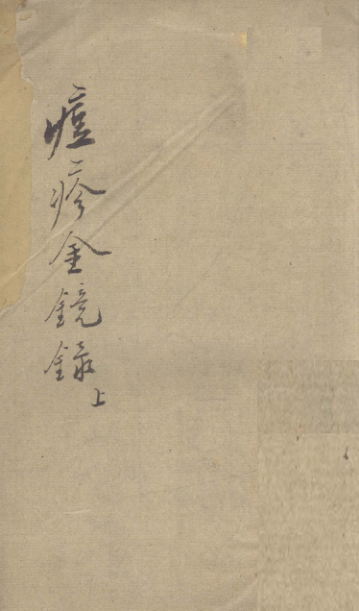 痘疹金鏡錄上